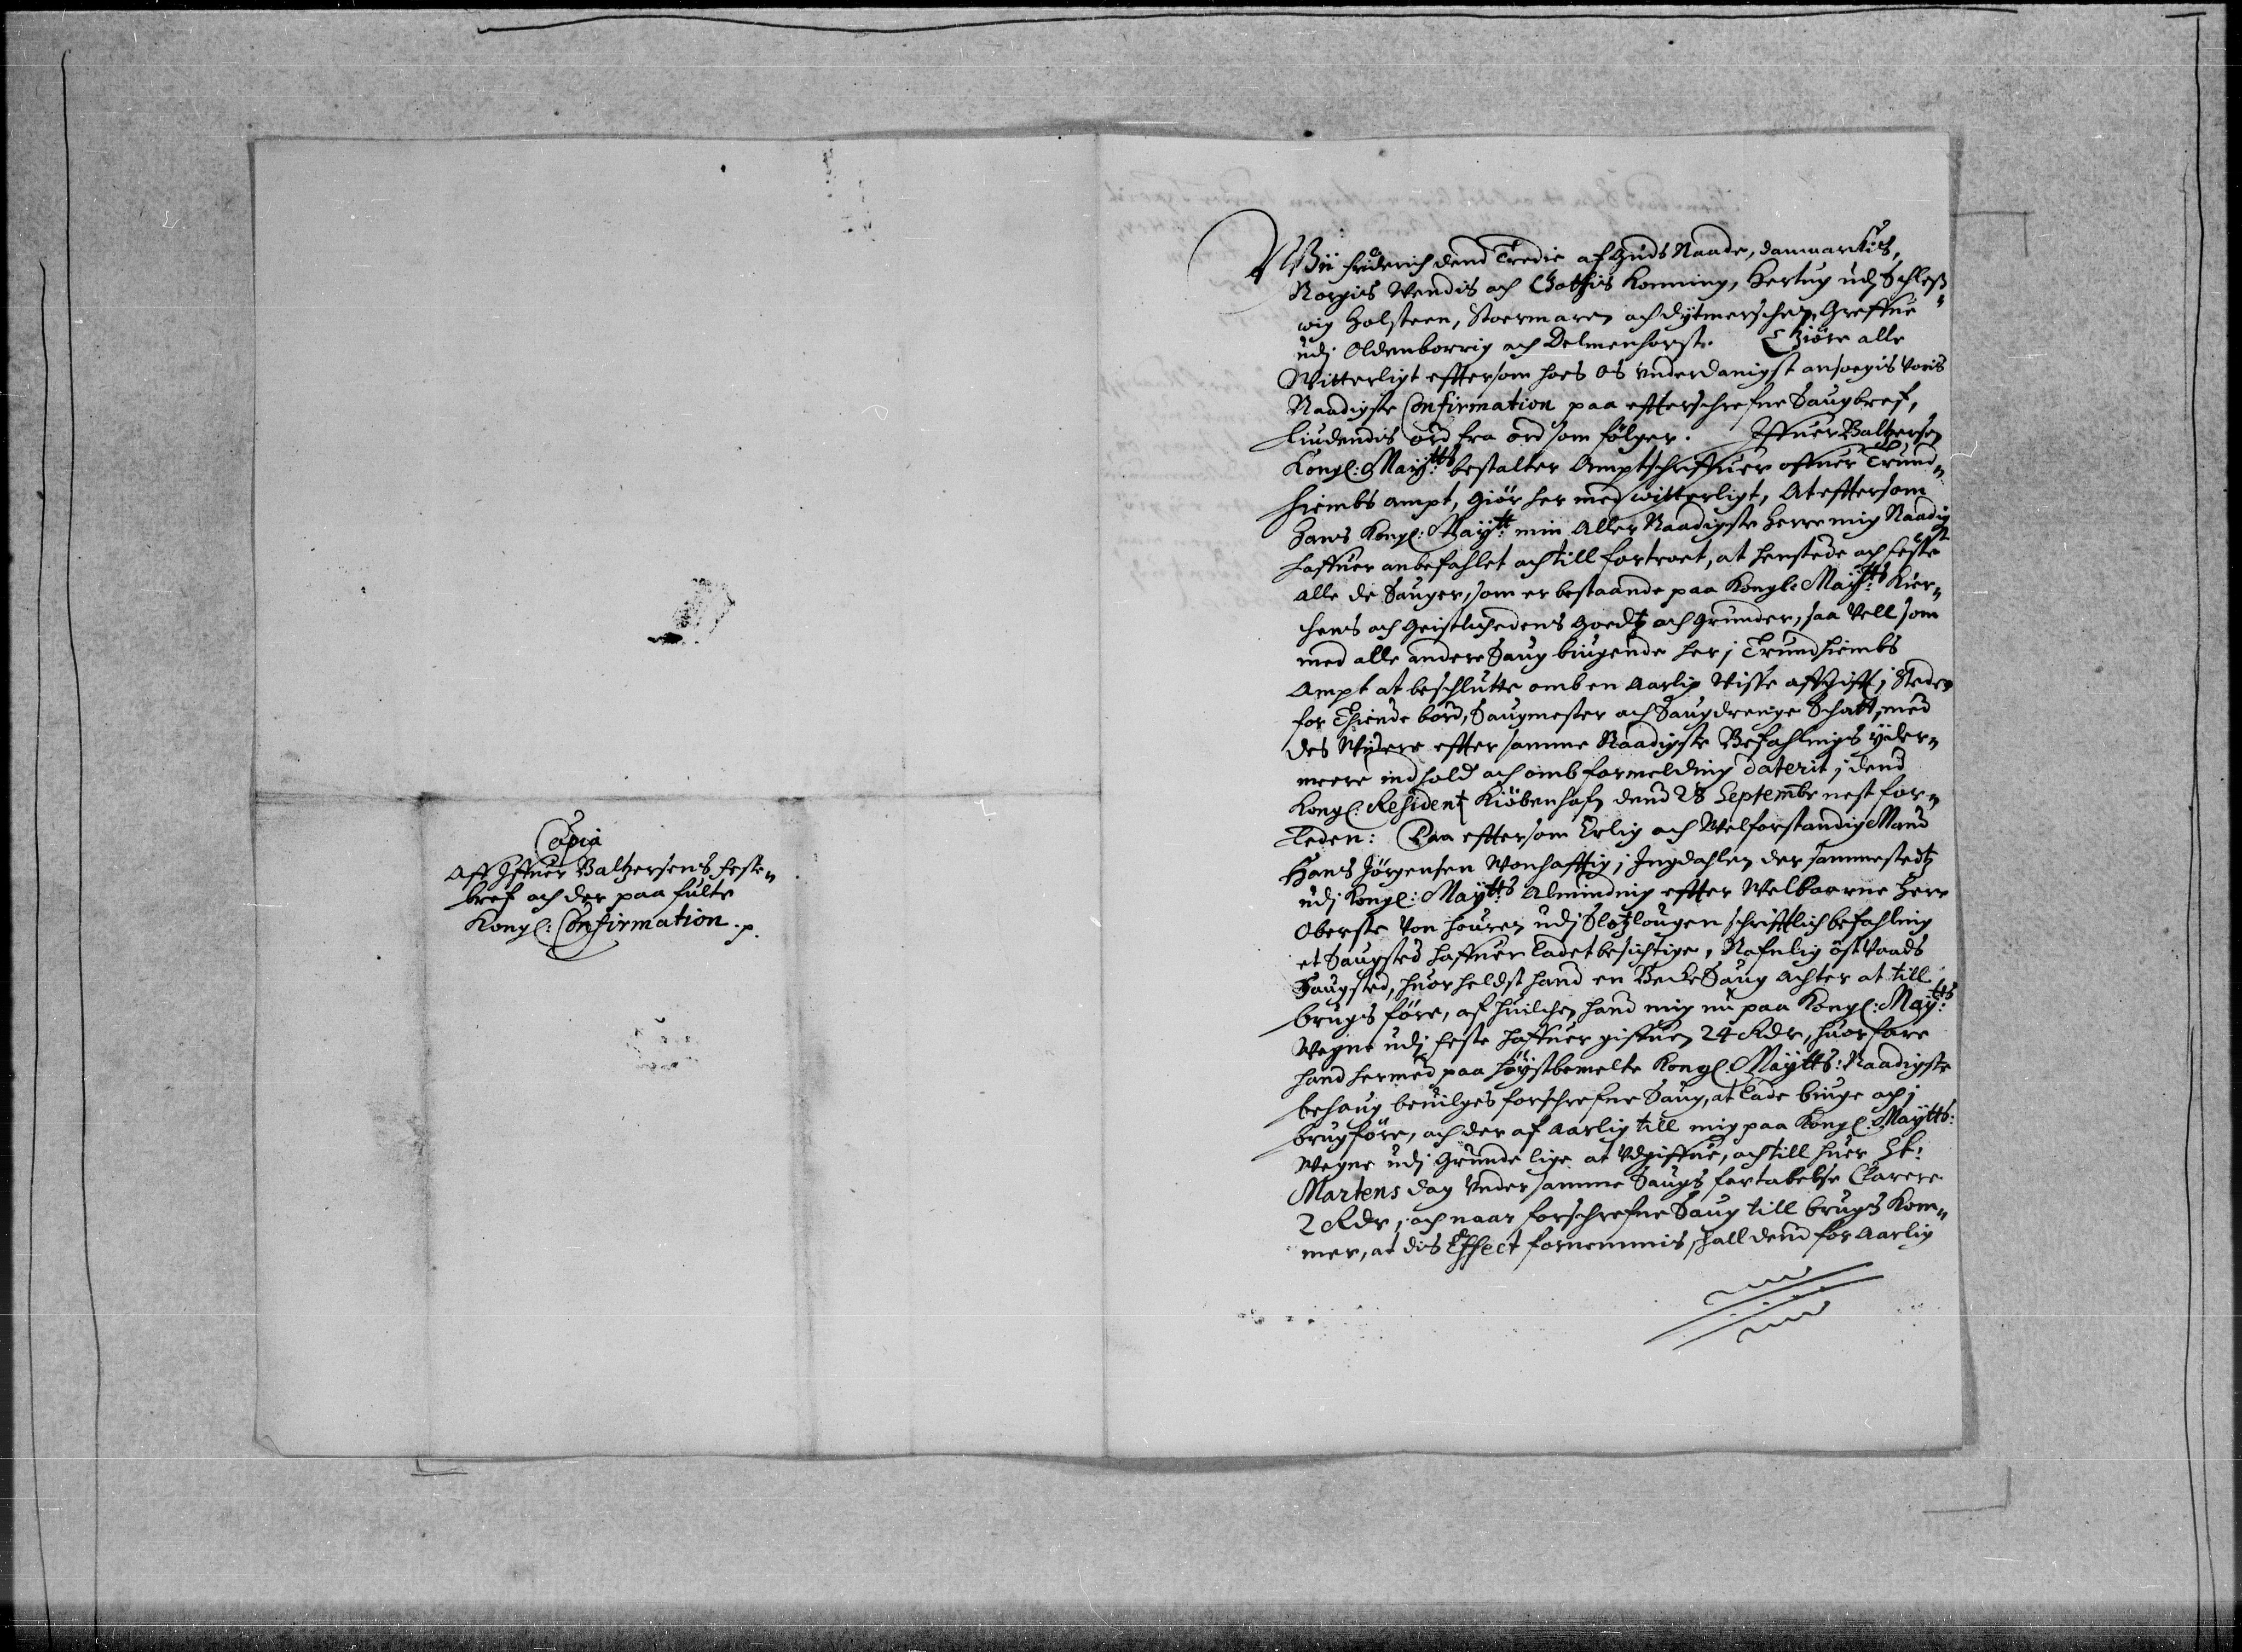 Copia
Aff Iffuer Baltzersens feste„
bref och der paa fulte
Kongl: Confirmation. p.
Wii friderich dend Tredie af Guds Naade, danmarkis,
Norgis Wendis och Gothis Konning, Hertug udj Schleß„
wig Holsteen, Stoermaren och dytmerschen, Greffue
udj Oldenborrig och Delmenhorst. Giöre alle
Witterligt efftersom hoes os underdanigst ansoegis voris
Naadigste Confirmation paa effterschrefne Saugbref,
liudendis ord fra ord som fölger. Iffuer Baltzersen
Kongl: Maytts bestalter Amptschriffuer offuer Trund„
hiembs ampt, Giör her med witterligt, At efftersom
Hans Kongl: Maytt min Aller Naadigste Herre mig Naadigst
haffuer anbefahlet och till fortroet, at henstede och feste
alle de Sauger, som er bestaande paa Kongl: Maytts Kier„
chens och Geistlichedens Goedtz och Grunder, saa vell som
med alle andere Saug bingende her j Trundhiembs
Ampt at beschlutte omb en Aarlig Wisse affgifft j Steden
for Thiende bord, Saugmester och Saugdrenge Schatt, med
des Widere effter samme Naadigste Befahlings yder„
meere indhold och omb formelding daterit j dend
Kongl: Resident Kiöbenhafn dend 28 Septembr nest for„
leden: Saa efftersom Erlig och Welforstandig Mand
Hans Jörgensen Wonhafftig j Ingdahlen der sammestedtz
udj Kongl: Maytts Alminding effter Welbaarne Herr
Oberste Von houen udj Slotzlougen schrifftlich befahling
et Saugsted haffuer ladet besichtige, Nafnlig öst Vaads
Saugsted, huor heldst hand en Beckesaug achter at till
brugs före, af huilchen hand mig nu paa Kongl: Maytts
Wegne udj feste haffuer giffuen 24 Rdr, huorfore
hand hermed paa höystbemelte Kongl. Maytts: Naadigste
behaug beuilges forschrefne Saug, at lade biuge och j
brug före, och der af Aarlig till mig paa Kongl. Maytts:
Wegne udj Grunde lige at udgiffue, och till huer St:
Martens dag under samme Saugs fortabelse Clarere
2 Rdr, och naar forschrefne Saug till brugs Kom„
mer, at dis Effect fornemmis, schall dend for Aarlig